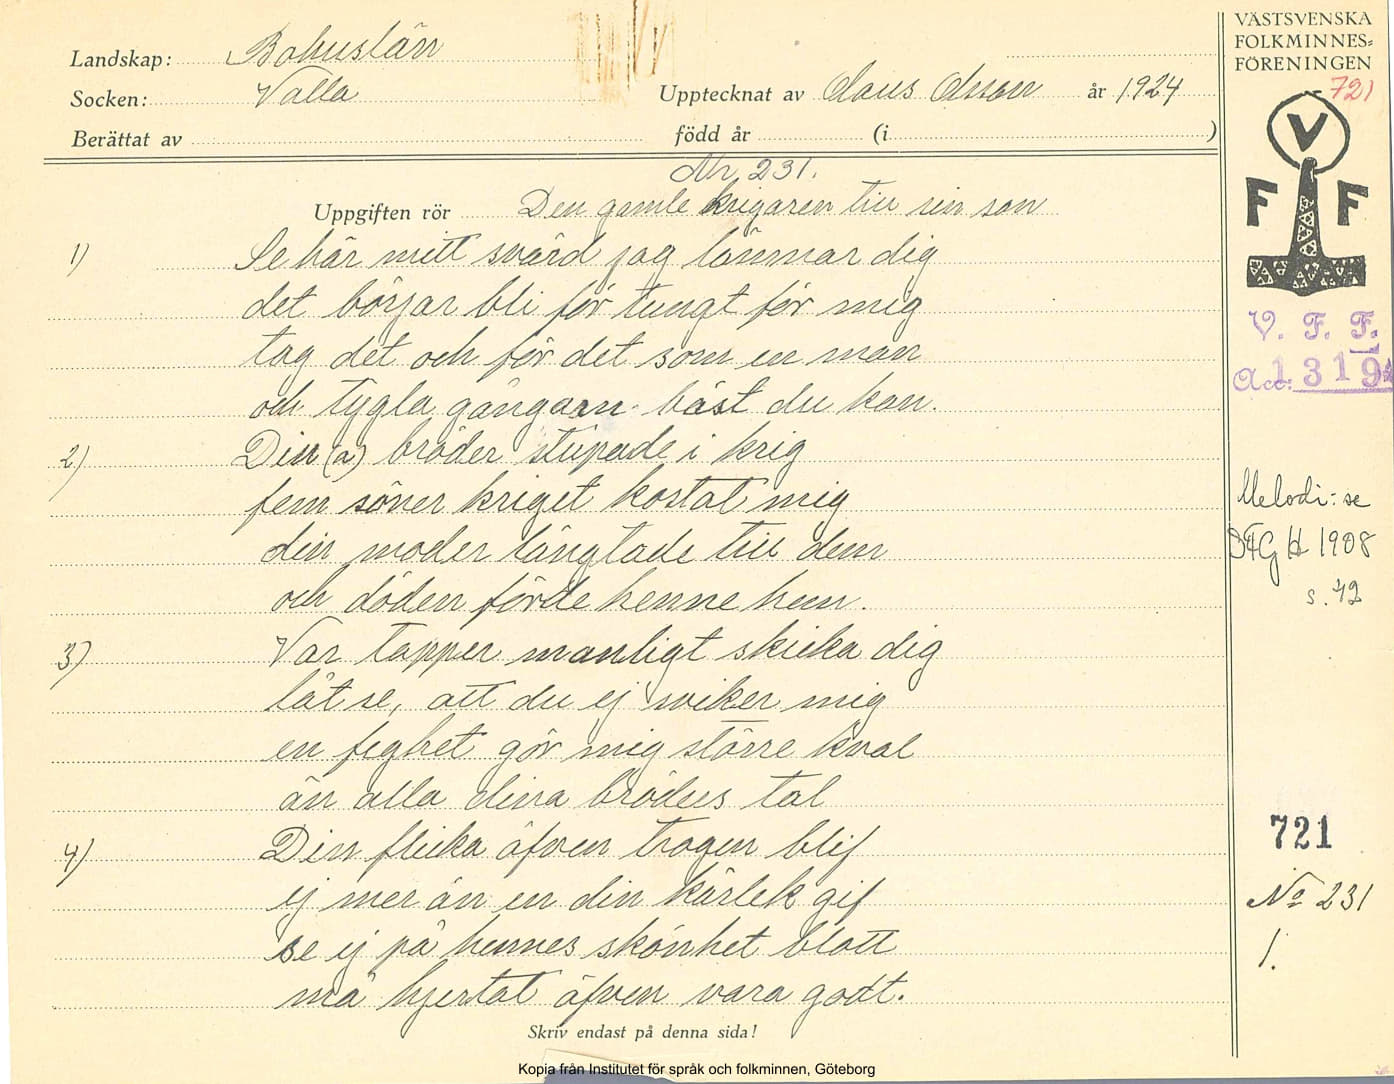 Landskap: Bohuslän
Socken: Valla
Upptecknat av Claus Olsson år 1924
Berättat av
född år (i )
VÄSTSVENSKA
FOLKMINNES=
FÖRENINGEN
721
V
F F
V. F. F.
Acc: 1319
Melodi: se
IFGH 1908
s. 42
721
No 231
1.
Nr. 231.
Uppgiften rör Den gamle krigaren till sin son
1) Se här mitt svärd jag lämnar dig
det börjar bli för tungt för mig
tag det och för det som en man
och tygla gångarn bäst du kan.
2) Din (a) bröder stupade i krig
fem söner kriget kostat mig
din moder längtade till dem
och döden förde henne hem.
3) Var tapper manligt skicka dig
låt se, att du ej sviker mig
en feghet gör mig större kval
än alla dina bröders tal
4) Din flicka äfven trogen blif
ej mer än en din kärlek gif
se ej på hennes skönhet blott
må hjertat äfven vara godt.
Skriv endast på denna sida!
Kopia från Institutet för språk och folkminnen, Göteborg